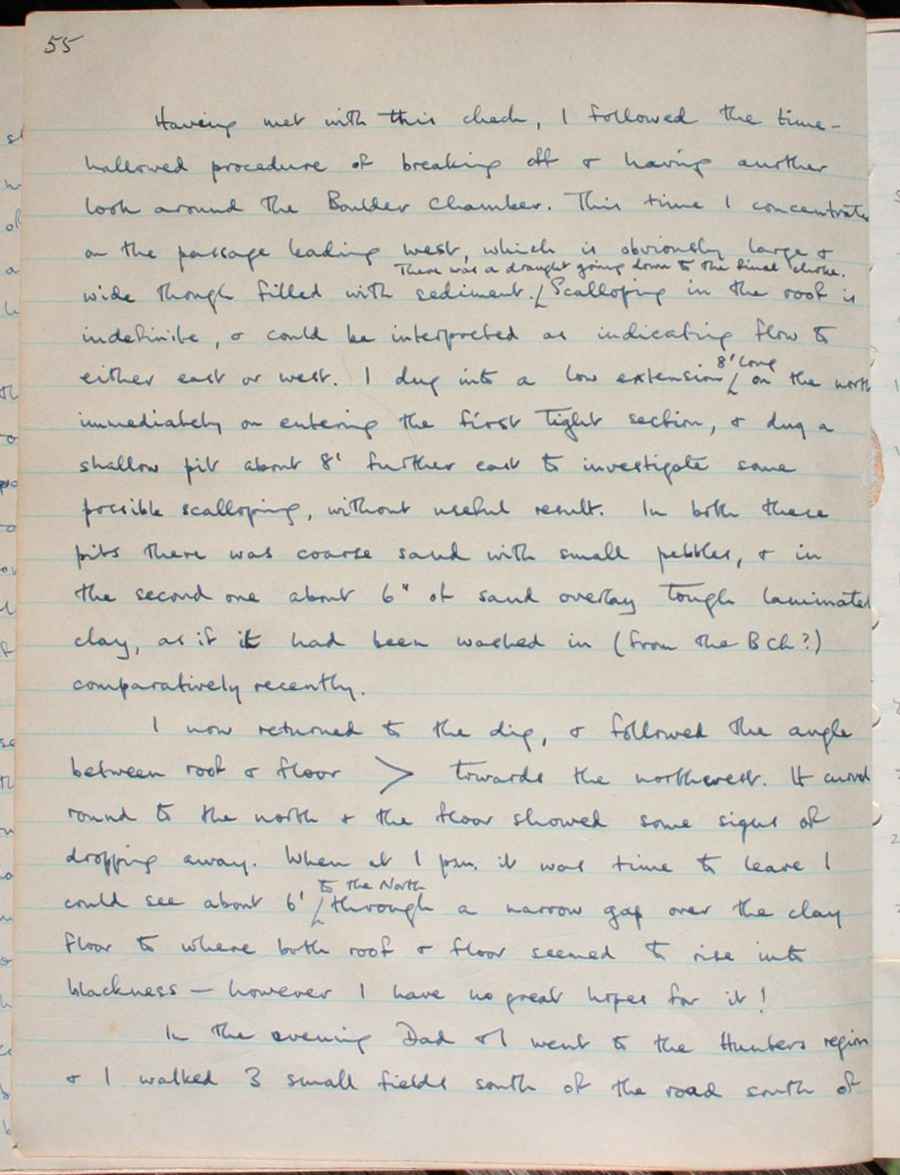 55
Having met with this check, I followed the time-
hallowed procedure of breaking off & having another
look around the Boulder Chamber. This time I concentrate
on the passage leading west, which is obviously large &
There was a draught going down to the final choke.
wide though filled with sediment. Scalloping in the roof is
indefinite, & could be interpreted as indicating flow to
8' long
either east or west. I dug into a low extension on the north
immediately on entering the first tight section, & dug a
shallow pit about 8' further east to investigate some
possible scalloping, without useful result. In both these
pits there was coarse sand with small pebbles, & in
the second one about 6" of sand overlay tough laminated
clay, as if it had been washed in (from the B Ch?)
comparatively recently.
I now returned to the dig, & followed the angle
between roof & floor > towards the northwest. It curved
round to the north & the floor showed some signs of
dropping away. When at 1 pm. it was time to leave I
to the North
could see about 6' through a narrow gap over the clay
floor to where both roof & floor seemed to rise into
blackness — however I have no great hopes for it!
In the evening Dad & I went to the Hunters region
& I walked 3 small fields south of the road south of